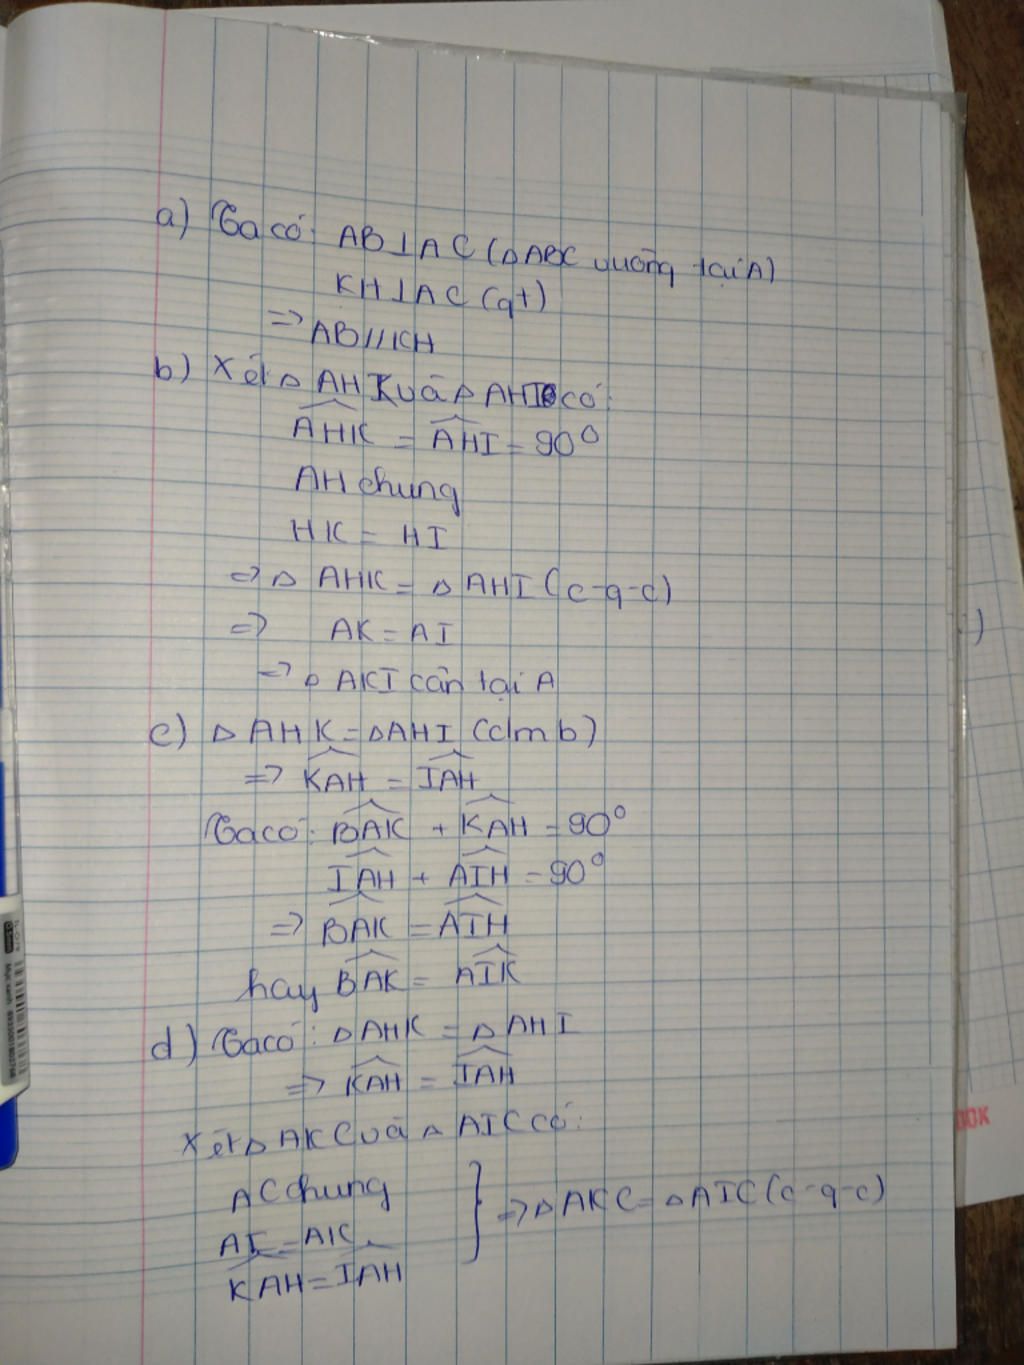 a) Ta có: AB⊥AC (△ABC vuông tại A)
KH⊥AC (gt)
=> AB//KH
b) Xét △ AHK và △ AHI có:
AHK = AHI = 90°
AH chung
HK = HI
=> △ AHK = △ AHI (c-g-c)
=> AK = AI
=> △ AKI cân tại A
c) △ AHK = △AHI (cm b)
=> KAH = IAH
Ta có: BAK + KAH = 90°
IAH + AIH = 90°
=> BAK = AIH
hay BAK = AIK
d) Ta có: △AHK = △ AHI
=> KAH = IAH
Xét △ AKC và △ AIC có:
AC chung
AI = AK
KAH = IAH
=> △ AKC = △AIC (c-g-c)
OOK